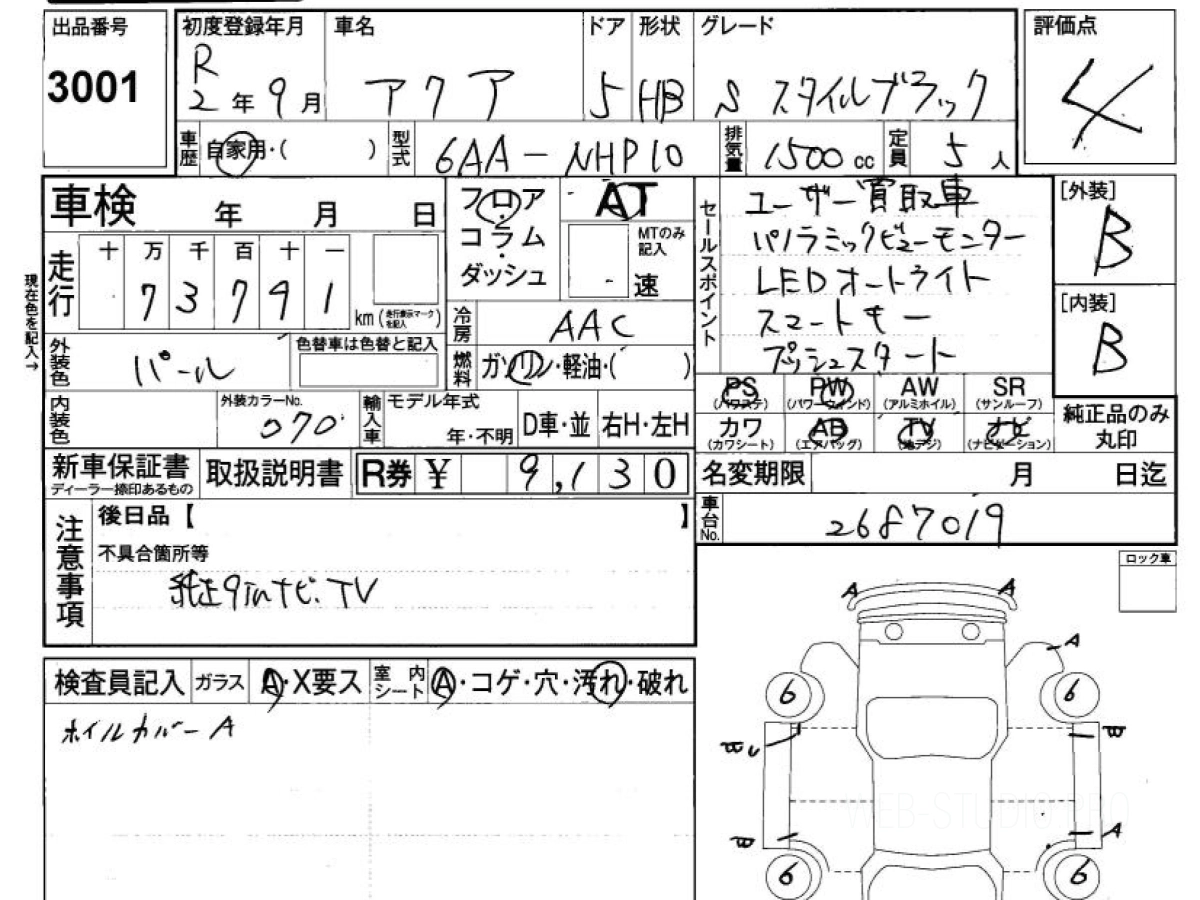 出品番号 初度登録年月 車名 ドア 形状 グレード 評価点
3001 R2年9月 アクア 5 HB S スタイルブラック 4
車歴 自家用・( ) 型式 6AA-NHP10 排気量 1500cc 定員 5人
車検 年 月 日
フロア・コラム・ダッシュ
AT
MTのみ記入
- 速
セールスポイント
ユーザー買取車
パノラミックビューモニター
LEDオートライト
スマートキー
プッシュスタート
[外装]
B
[内装]
B
現在色を記入→
走行 十 万 千 百 十 一
73791 km (走行表示マークを記入)
冷房 AAC
外装色 パール 色替車は色替と記入
燃料 ガソリン・軽油・( )
内装色 外装カラーNo. 070
輸入車 モデル年式 年・不明 D車・並 右H・左H
PS (パワステ) PW (パワーウィンド) AW (アルミホイル) SR (サンルーフ)
カワ (カワシート) AB (エアバッグ) TV (地デジ) ナビ (ナビゲーション)
純正品のみ丸印
新車保証書 ディーラー捺印あるもの 取扱説明書 R券 ¥ 9,130
名変期限 月 日迄
車台No. 2687019
注意事項
後日品【 】
不具合箇所等
純正9inナビ.TV
ロック車
A A
A
6 6
W U W
W A
6 6
検査員記入 ガラス A・X要ス 室内シート A・コゲ・穴・汚れ・破れ
ホイルカバーA
WEB-STUDIO PRO